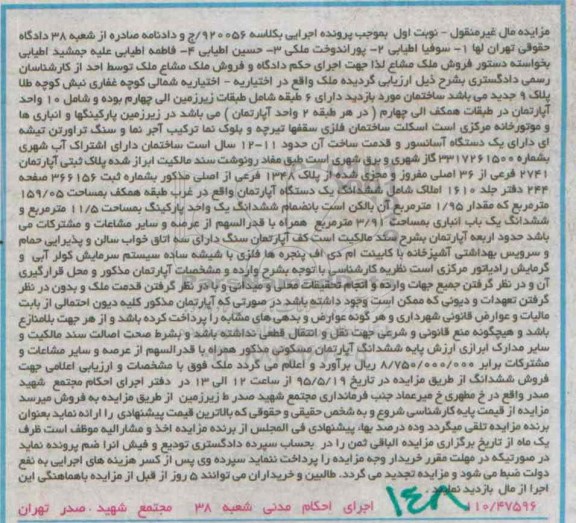 مزایده مال غیرمنقول - نوبت اول بموجب پرونده اجرایی بکلاسه ۹۲۰۰۵۶/ج و دادنامه صادره از شعبه ۳۸ دادگاه
حقوقی تهران لها ۱- سوفیا اطیابی ۲- پوراندوخت ملکی ۳- حسین اطیابی ۴- فاطمه اطیابی علیه جمشید اطیابی
بخواسته دستور فروش ملک مشاع لذا جهت اجرای حکم دادگاه و فروش ملک مشاع ملک توسط احد از کارشناسان
رسمی دادگستری بشرح ذیل ارزیابی گردیده ملک واقع در اختیاریه - اختیاریه شمالی کوچه غفاری نبش کوچه طلا
پلاک ۹ جدید می باشد ساختمان مورد بازدید دارای ۶ طبقه شامل طبقات زیرزمین الی چهارم بوده و شامل ۱۰ واحد
آپارتمان در طبقات همکف الی چهارم ( در هر طبقه ۲ واحد آپارتمان ) می باشد در زیرزمین پارکینگها و انباری ها
و موتورخانه مرکزی است اسکلت ساختمان فلزی سقفها تیرچه و بلوک نما ترکیب آجر نما و سنگ تراورتن تیشه
ای دارای یک دستگاه آسانسور و قدمت ساخت آن حدود ۱۱-۱۲ سال است ساختمان دارای اشتراک آب شهری
بشماره ۳۳۱۷۲۶۱۵۰۰ گاز شهری و برق شهری است طبق مفاد رونوشت سند مالکیت ابراز شده پلاک ثبتی آپارتمان
۲۷۴۱ فرعی از ۳۶ اصلی مفروز و مجزی شده از پلاک ۱۳۴۸ فرعی از اصلی مذکور بشماره ثبت ۳۶۶۱۵۶ صفحه
۲۴۴ دفتر جلد ۱۶۱۰ املاک شامل ششدانگ یک دستگاه آپارتمان واقع در غرب طبقه همکف بمساحت ۱۵۹/۰۵
مترمربع که مقدار ۱/۹۵ مترمربع آن بالکن است بانضمام ششدانگ یک واحد پارکینگ بمساحت ۱۱/۵ مترمربع و
ششدانگ یک باب انباری بمساحت ۳/۹۱ مترمربع همراه با قدرالسهم از عرصه و سایر مشاعات و مشترکات می
باشد حدود اربعه آپارتمان بشرح سند مالکیت است کف آپارتمان سنگ دارای سه اتاق خواب سالن و پذیرایی حمام
و سرویس بهداشتی آشپزخانه با کابینت ام دی اف پنجره ها فلزی با شیشه ساده سیستم سرمایش کولر آبی و
گرمایش رادیاتور مرکزی است نظریه کارشناسی با توجه بشرح وارده و مشخصات آپارتمان مذکور و محل قرارگیری
آن و در نظر گرفتن جمیع جهات وارده و انجام تحقیقات محلی و میدانی و با در نظر گرفتن قدمت ملک و بدون در نظر
گرفتن تعهدات و دیونی که ممکن است وجود داشته باشد در صورتی که آپارتمان مذکور کلیه دیون احتمالی از بابت
مالیات و عوارض قانونی شهرداری و هر گونه عوارض و بدهی های مشابه را پرداخت کرده باشد و از هر جهت بلامنازع
باشد و هیچگونه منع قانونی و شرعی جهت نقل و انتقال قطعی نداشته باشد و بشرط صحت اصالت سند مالکیت و
سایر مدارک ابرازی ارزش پایه ششدانگ آپارتمان مسکونی مذکور همراه با قدرالسهم از عرصه و سایر مشاعات و
مشترکات برابر ۸/۷۵۰/۰۰۰/۰۰۰ ریال برآورد و اعلام می گردد ملک فوق با مشخصات و ارزیابی اعلامی جهت
فروش ششدانگ از طریق مزایده در تاریخ ۹۵/۵/۱۹ از ساعت ۱۲ الی ۱۳ در دفتر اجرای احکام مجتمع شهید
صدر واقع در خ مطهری خ میرعماد جنب فرمانداری مجتمع شهید صدر ط زیرزمین از طریق مزایده به فروش میرسد
مزایده از قیمت پایه کارشناسی شروع و به شخص حقیقی و حقوقی که بالاترین قیمت پیشنهادی را ارائه نماید بعنوان
برنده مزایده تلقی میگردد وده درصد بها، پیشنهادی فی المجلس از برنده مزایده اخذ و مشارالیه موظف است ظرف
یک ماه از تاریخ برگزاری مزایده الباقی ثمن را در بحساب سپرده دادگستری تودیع و فیش انرا ضم پرونده نماید
در صورتیکه در مهلت مقرر خریدار وجه مزایده را پرداخت ننماید سپرده وی پس از کسر هزینه های اجرایی به نفع
دولت ضبط می شود و مزایده تجدید می گردد. طالبین و خریداران می توانند ۵ روز از قبل از مزایده باهماهنگی این
اجرا از مال بازدید نمایند.
۱۱۰/۴۷۵۹۶ ۱۴۸ اجرای احکام مدنی شعبه ۳۸ مجتمع شهید صدر تهران